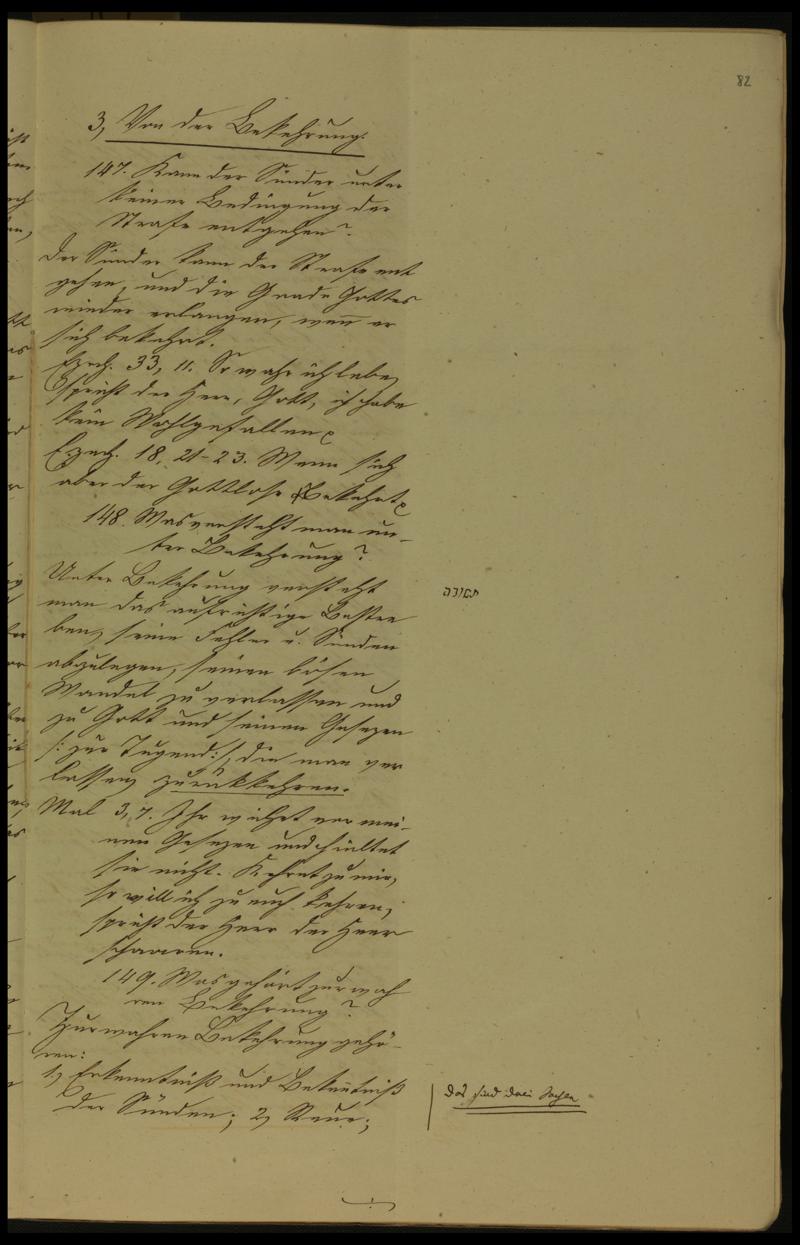 82
3, Von der Bekehrung.
147. Kann der Sünder unter
keiner Bedingung der
Strafe entgehen?
Der Sünder kann der Strafe ent
gehen, und die Gnade Gottes
wieder erlangen, weñ er
sich bekehrt.
Ezech. 33, 11. So wahr ich lebe,
spricht der Herr, Gott, ich habe
kein Wohlgefallen
Ezech. 18, 21-23. Wenn sich
aber der Gottlose bekehrt
148. Was versteht man un-
ter Bekehrung?
Unter Bekehrung versteht
man das aufrichtige Bestre
ben, seine Fehler u. Sünden
abzulegen, seinen bösen
Wandel zu verlassen und
zu Gott und seinen Gesezen
/: zur Tugend :/, die man ver
lassen, zurükkehren.
Mal 3, 7. Ihr wichet von mei-
nen Gesezen und hieltet
sie nicht. Kehret zu mir,
so will ich zu euch kehren,
spricht der Herr der Heer
schaaren.
149. Was gehört zur wah
ren Bekehrung?
Zur wahren Bekehrung gehö-
ren:
1.) Erkenntniß und Bekeñtniß
der Sünden; 2) Reue;
das sind drei Sachen